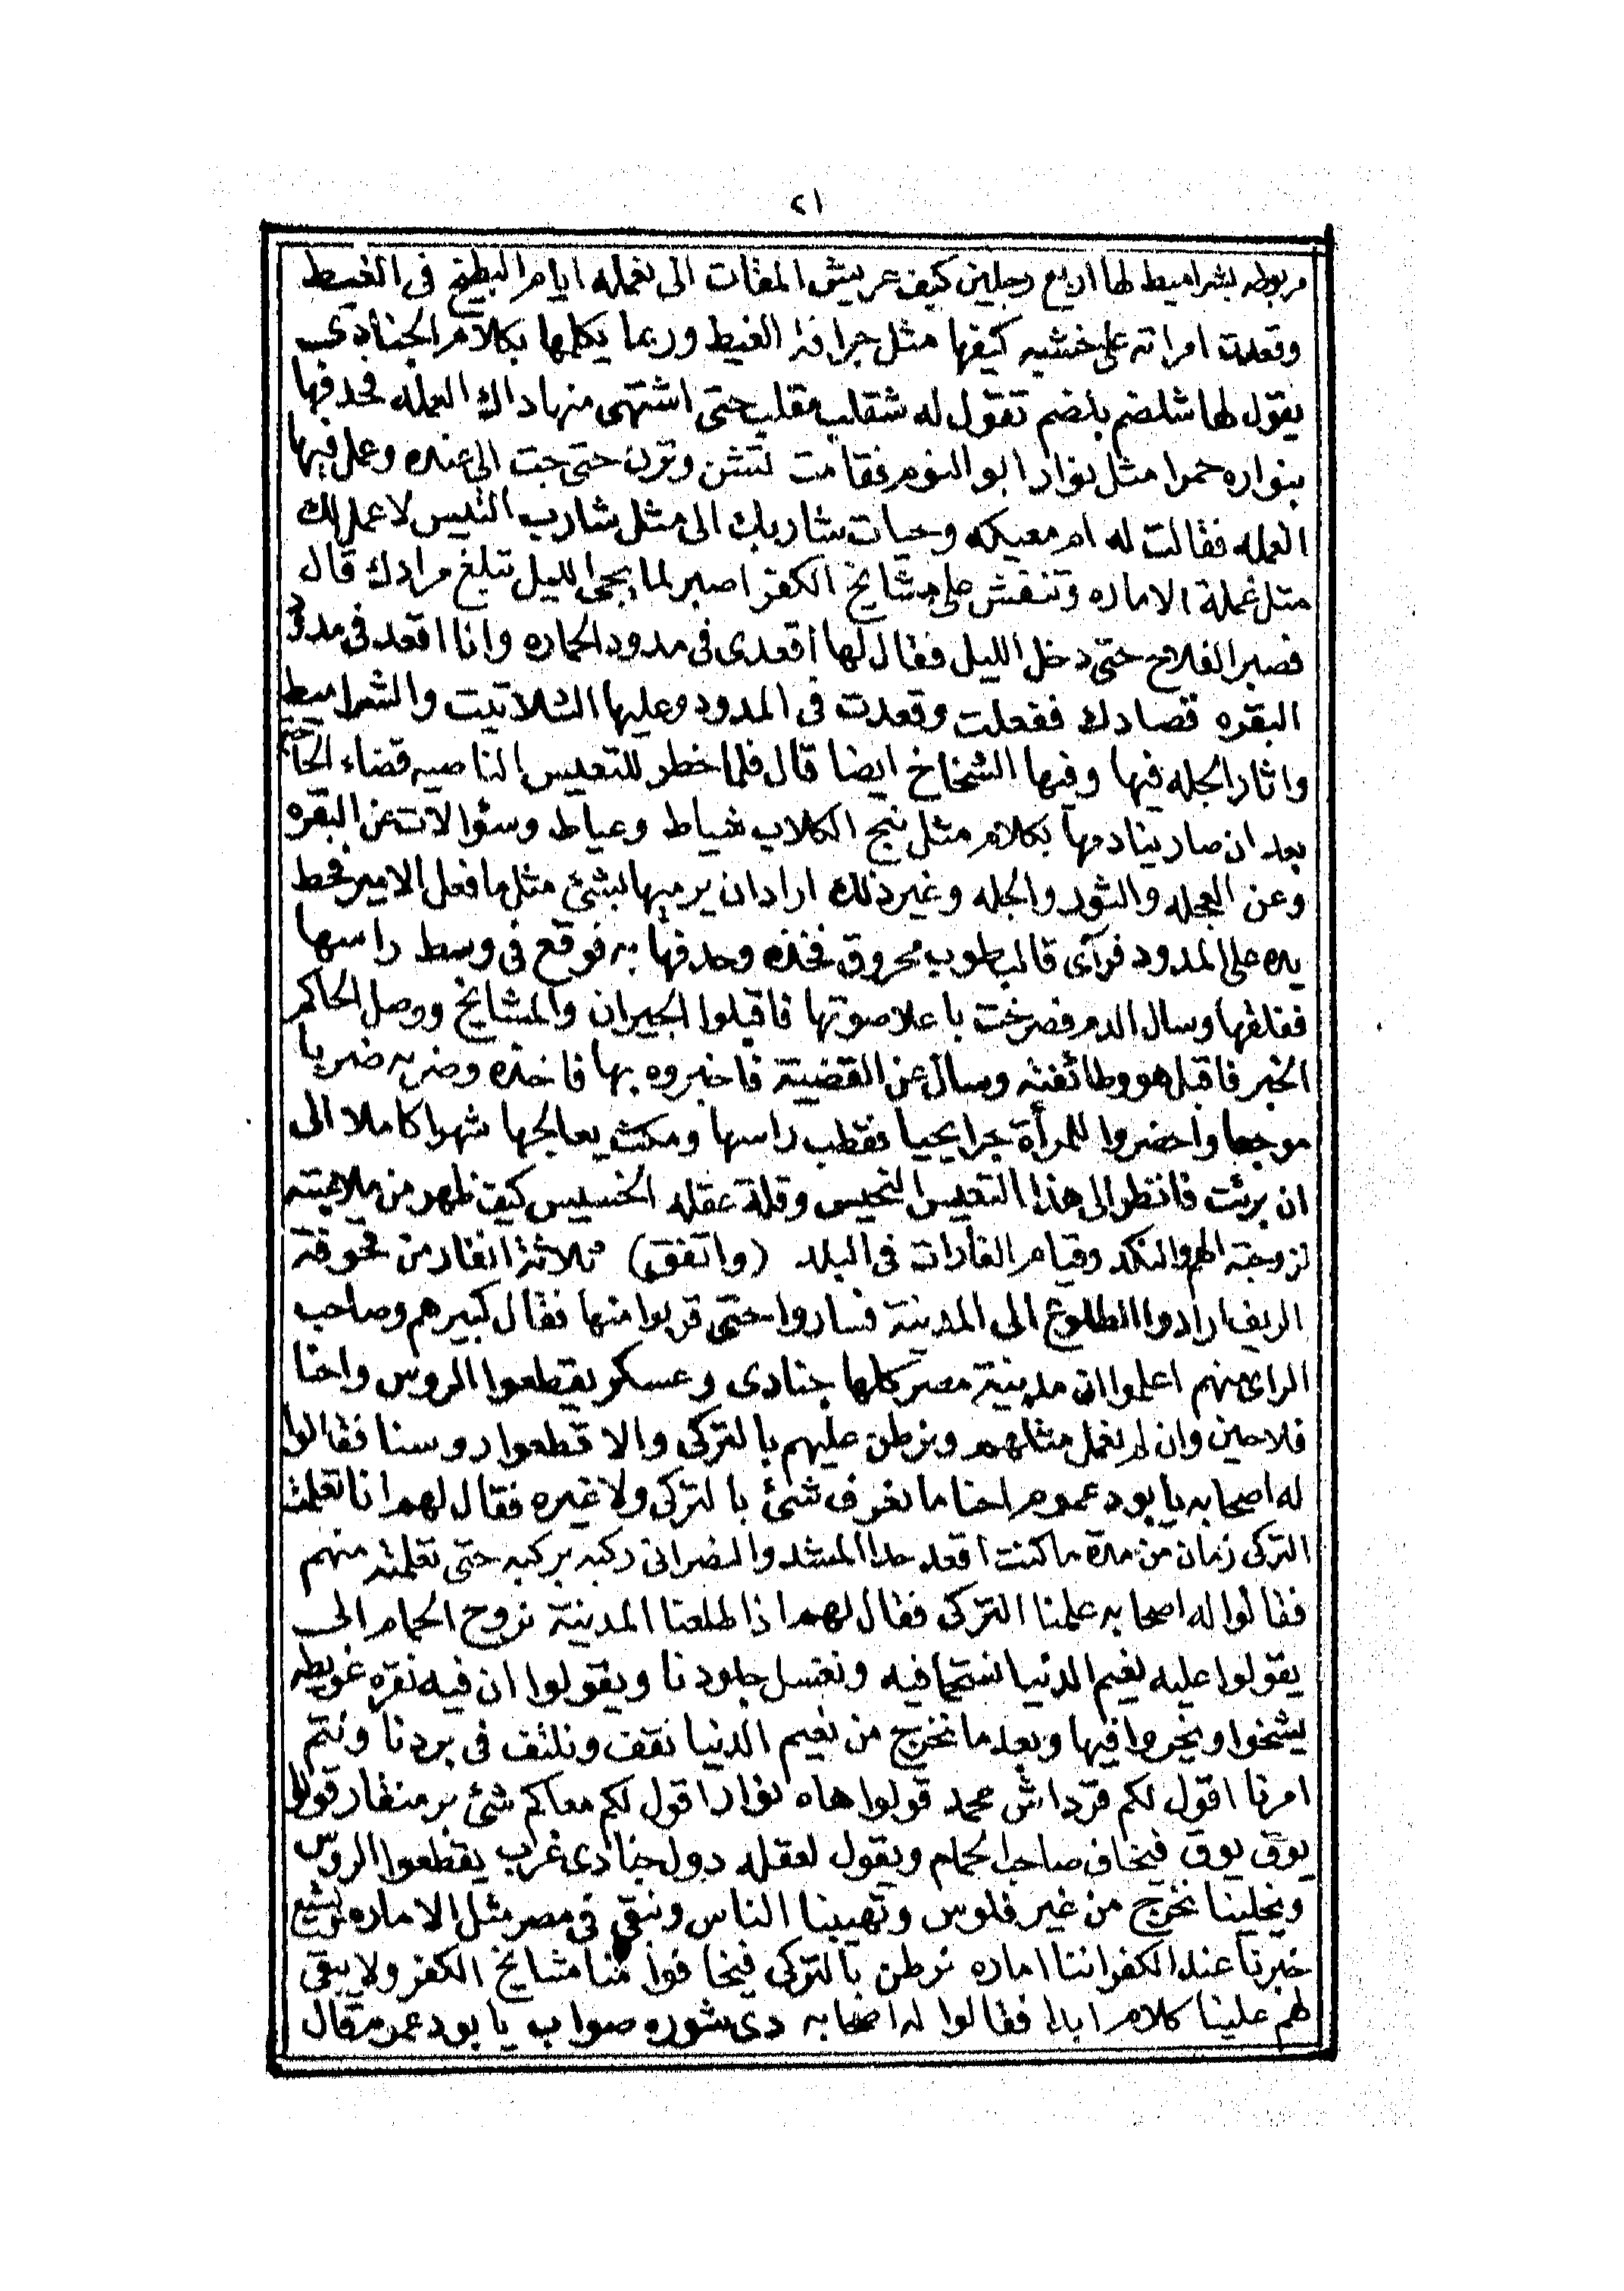 ٢١
مربوطه بشراميط لها اربع رجلين كيف عريش المقات الى نعمله ايام البطيخ فى الغيط
وقعدت امراته على خشبه كيفها مثل جرافة الغيط وربما يكلمها بكلام الجنادى
يقول لها شلضم بلضم تقول له شقلب مقلب حتى اشتهى منها داك العمله فحدفها
بنواره حمرا مثل نوار ابو النوم فقامت لتشن وترن حتى جت الى عنده وعمل فيها
العمله فقالت له ام معيكه وحيات شاربك الى مثل شارب التيس لاعمل لك
مثل عملة الاماره وتنفش على مشايخ الكفر اصبر لما يجى الليل تبلغ مرادك قال
فصبر الفلاح حتى دخل الليل فقال لها اقعدى فى مدود الحماره وانا اقعد فى مدود
البقره قصادك ففعلت وقعدت فى المدود وعليها الشلاتيت والشراميط
واثار الجله فيها وفيها الشخاخ ايضا قال فلما خطر للتعيس الناصيه قضاء الحاجه
بعد ان صار ينادمها بكلام مثل نبح الكلاب شياط وعياط وسؤالات عن البقره
وعن العجله والثور والجله وغير ذلك اراد ان يرميها بشئ مثل ما فعل الامير فحط
يده على المدود فرآى قالب طوب محروق فخذه وحدفها به فوقع فى وسط راسها
ففلقها وسال الدم فصرخت باعلا صوتها فاقبلوا الجيران والمشايخ ووصل الحاكم
الخبر فاقبل هو وطائفته وسال عن القضية فاخبروه بها فاخذه وضربه ضربا
موجعا واحضروا للمرأة جرايحيا فقطب راسها ومكث يعالجها شهرا كاملا الى
ان برئت فانظر الى هذا التعيس النحيس وقلة عقله الخسيس كيف ظهر من ملاعبته
لزوجته الهم والنكد وقيام الغارات فى البلد (واتفق) ثلاثة انفار من قحوفة
الريف ارادوا الطلوع الى المدينة فساروا حتى قربوا منها فقال كبيرهم وصاحب
الراى منهم اعلموا ان مدينة مصر كلها جنادى وعسكر يقطعوا الروس واحنا
فلاحين وان لم نعمل مثلهم ونرطن عليهم بالتركى والا قطعوا روسنا فقالوا
له اصحابه يا بو دعموم احنا ما نعرف شئ بالتركى ولا غيره فقال لهم انا تعلمت
التركى زمان من مدة ما كنت اقعد حدا المشد والنصرانى ركبه بركبه حتى تعلمته منهم
فقالوا له اصحابه علمنا التركى فقال لهم اذا طلعنا المدينة نروح الحمام الى
يقولوا عليه نعيم الدنيا نستحما فيه ونغسل جلودنا ويقولوا ان فيه نقره غويطه
يشخوا ويخروا فيها وبعد ما نخرج من نعيم الدنيا نقف ونلتف فى بردنا ونتم
امرنا اقول لكم قرداش محمد قولوا هاه نوار اقول لكم معاكم شئ بر منقار قولوا
يوق يوق فيخاف صاحب الحمام ويقول لعقله دول جنادى غرب يقطعوا الروس
ويخلينا نخرج من غير فلوس وتهيبنا الناس ونبقى فى مصر مثل الاماره ويشيع
خبرنا عند الكفر اننا اماره نرطن بالتركى فيخافوا منا مشايخ الكفر ولا يبقى
لهم علينا كلام ابدا فقالوا له اصحابه دى شوره صواب يا بو دعموم قال